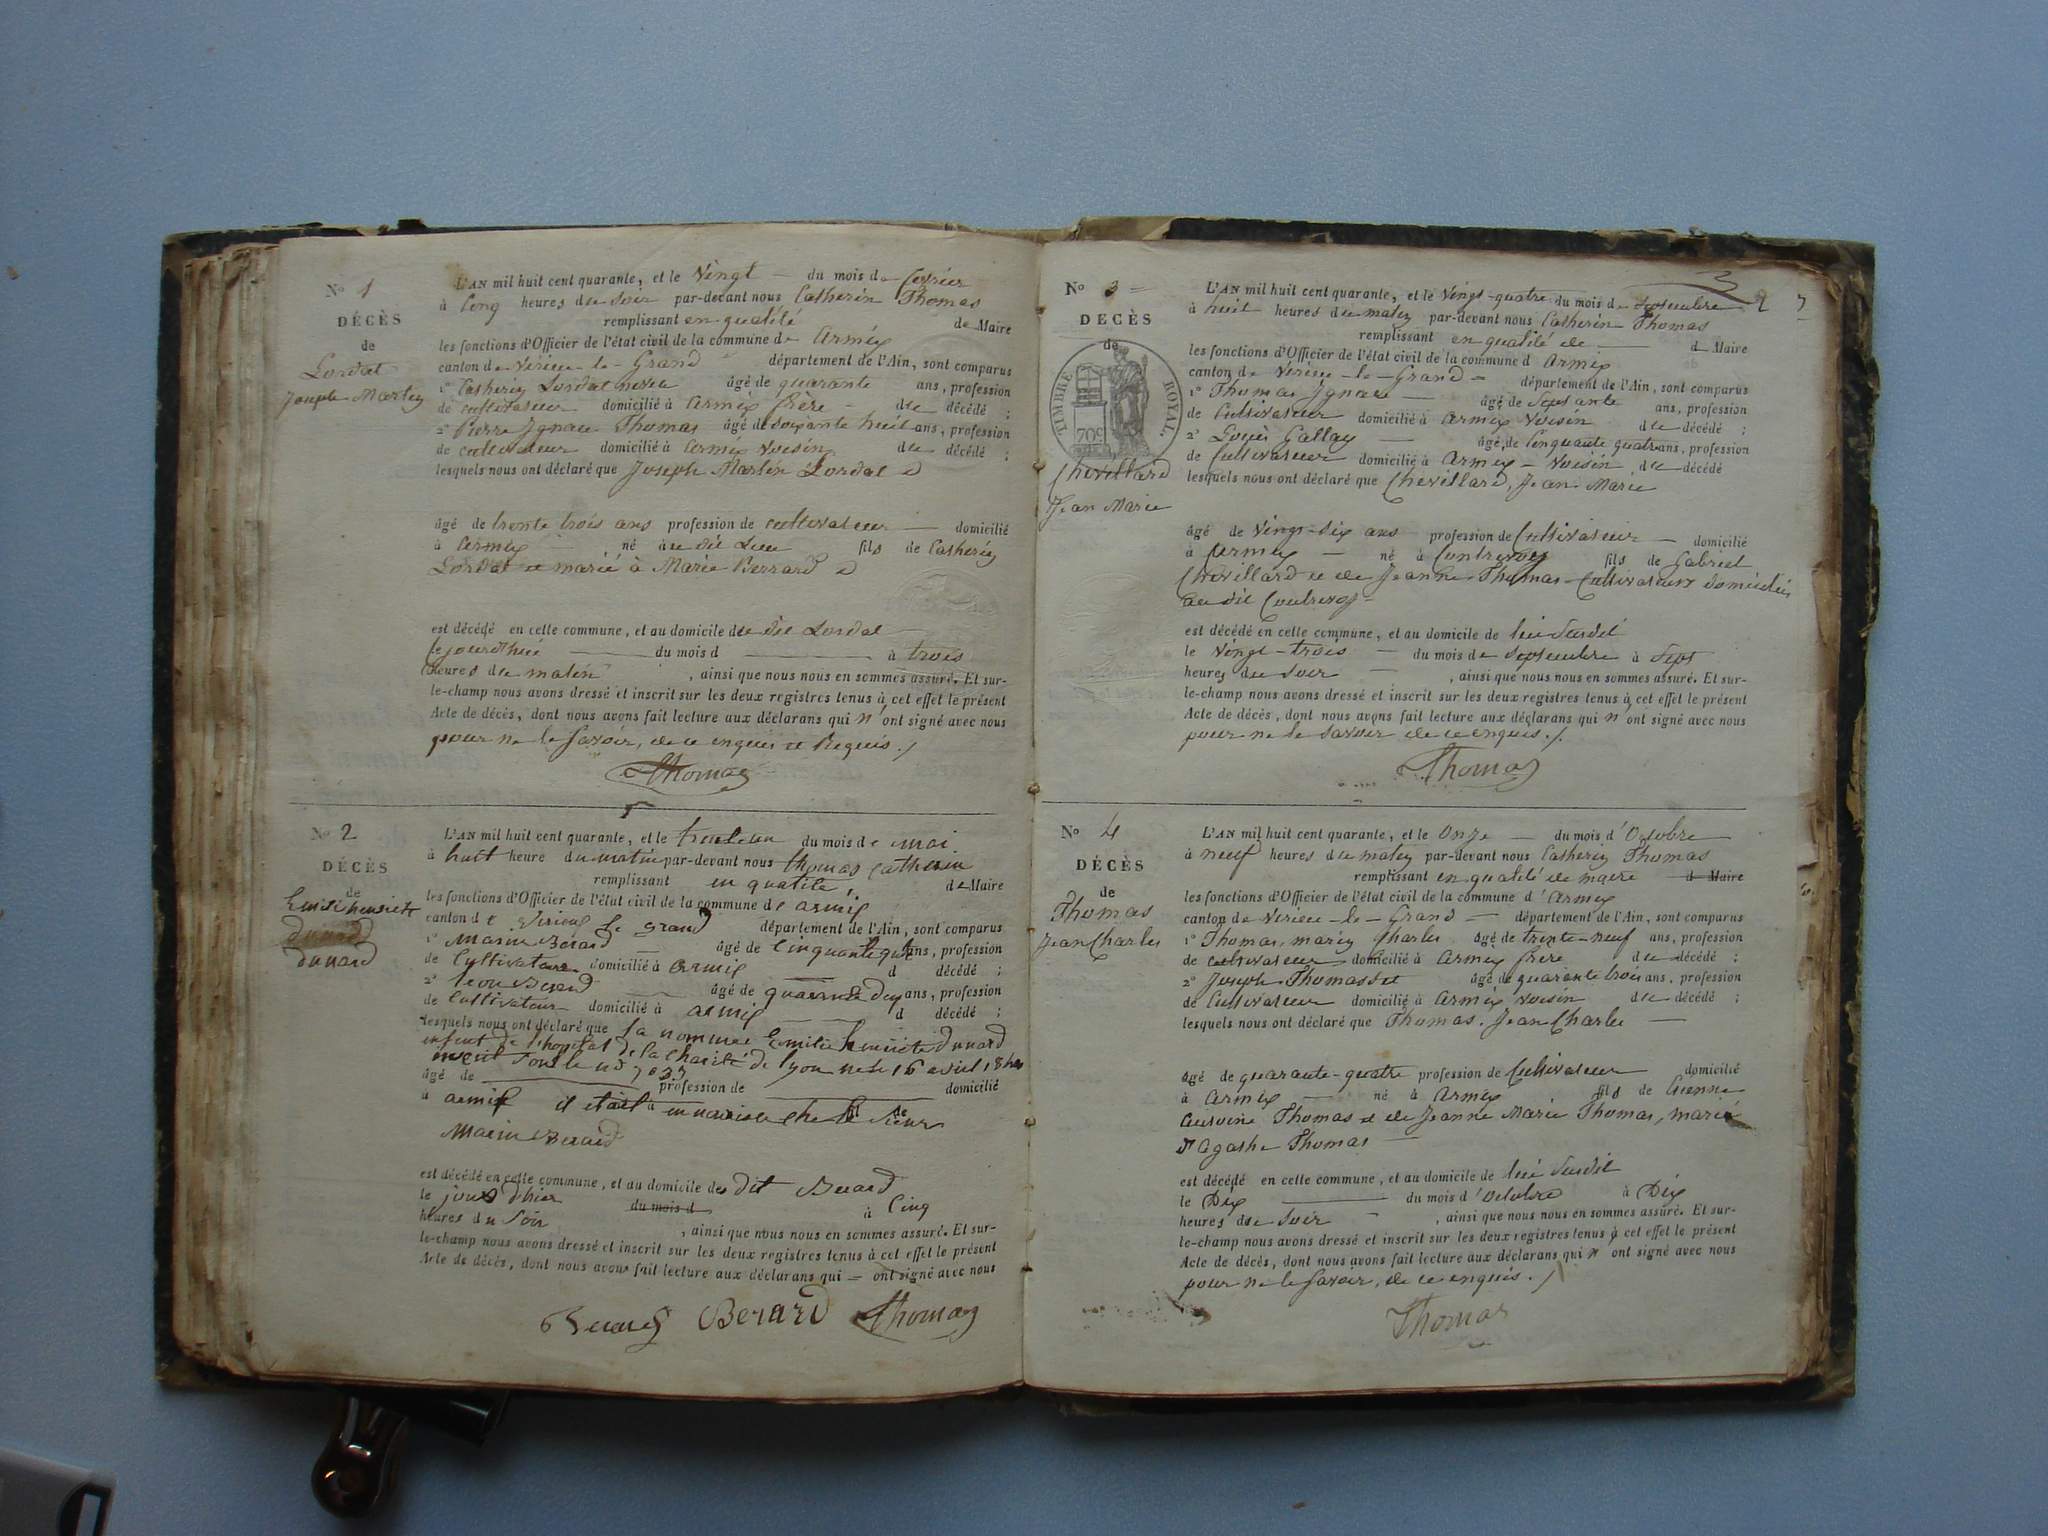 N° 1
DÉCÈS
de
Lordat
Joseph Martin
L'AN mil huit cent quarante, et le vingt du mois de fevrier
à cinq heures du soir par-devant nous Catherin Thomas
remplissant en qualité de Maire
les fonctions d'Officier de l'état civil de la commune de Armix
canton de Virieu-le-Grand département de l'Ain, sont comparus
1° Catherin Lordat âgé de quarante ans, profession
de cultivateur domicilié à Armix frère du décédé ;
2° Pierre Ignace Thomas âgé de soixante huit ans, profession
de cultivateur domicilié à Armix voisin du décédé ;
lesquels nous ont déclaré que Joseph Martin Lordat
âgé de trente trois ans profession de cultivateur domicilié
à Armix né au dit Lieu fils de Catherin
Lordat et marié à Marie Berrard
est décédé en cette commune, et au domicile du dit Lordat
le jourdhui du mois d à trois
heures du matin , ainsi que nous nous en sommes assuré. Et sur-
le-champ nous avons dressé et inscrit sur les deux registres tenus à cet effet le présent
Acte de décès, dont nous avons fait lecture aux déclarans qui n'ont signé avec nous
pour ne le savoir, de ce enquis et Requis ./
Thomas
N° 2
DÉCÈS
de
henriette
dunard
dunard
L'AN mil huit cent quarante, et le trente un du mois de mai
à huit heure du matin par-devant nous thomas catherin
remplissant en qualite, de Maire
les fonctions d'Officier de l'état civil de la commune de armix
canton de Virieux le grand département de l'Ain, sont comparus
1° Marin Berard âgé de cinquante ans, profession
de Cultivateur domicilié à armix d décédé ;
2° Berard âgé de ans, profession
de Cultivateur domicilié à armix d décédé ;
lesquels nous ont déclaré que la nommée Emilie henriete dunard
enfent de l'hopital de la charité de lyon née le 16 avril
âgé de profession de domicilié
à armix il etait en nourice che le sieur
Marin Berard
est décédé en cette commune, et au domicile du dit Berard
le jour d'hier du mois d à cinq
heures du soir , ainsi que nous nous en sommes assuré. Et sur-
le-champ nous avons dressé et inscrit sur les deux registres tenus à cet effet le présent
Acte de décès, dont nous avons fait lecture aux déclarans qui = ont signé avec nous
Berard Berard Thomas
3
N° 3
DÉCÈS
de
TIMBRE ROYAL
70c
Chevillard
Jean Marie
L'AN mil huit cent quarante, et le vingt-quatre du mois de septembre
à huit heures du matin par-devant nous Catherin Thomas
remplissant en qualité de d Maire
les fonctions d'Officier de l'état civil de la commune d Armix
canton de Virieu-le-Grand département de l'Ain, sont comparus
1° Thomas Ignace âgé de septante ans, profession
de Cultivateur domicilié à Armix voisin du décédé ;
2° Louis Gallay âgé de cinquante quatre ans, profession
de Cultivateur domicilié à Armix voisin du décédé
lesquels nous ont déclaré que Chevillard, Jean Marie
âgé de vingt-six ans profession de Cultivateur domicilié
à Armix né à Contrevoz fils de Gabriel
Chevillard et de Jeanne Thomas Cultivateurs domiciliés
au dit Contrevoz
est décédé en cette commune, et au domicile de lui susdit
le vingt-trois du mois de septembre à sept
heures du soir , ainsi que nous nous en sommes assuré. Et sur-
le-champ nous avons dressé et inscrit sur les deux registres tenus à cet effet le présent
Acte de décès, dont nous avons fait lecture aux déclarans qui n'ont signé avec nous
pour ne le savoir de ce enquis ./
Thomas
N° 4
DÉCÈS
de
Thomas
Jean Charles
L'AN mil huit cent quarante, et le onze du mois d'Octobre
à neuf heures du matin par-devant nous Catherin Thomas
remplissant en qualité de maire d Maire
les fonctions d'Officier de l'état civil de la commune d'Armix
canton de Virieu-le-Grand département de l'Ain, sont comparus
1° Thomas, marin Charles âgé de trente-neuf ans, profession
de cultivateur domicilié à Armix frère du décédé ;
2° Joseph Thomasset âgé de quarante trois ans, profession
de Cultivateur domicilié à Armix voisin du décédé ;
lesquels nous ont déclaré que Thomas, Jean Charles
âgé de quarante-quatre profession de Cultivateur domicilié
à Armix né à Armix fils de Etienne
Antoine Thomas et de Jeanne Marie Thomas, marié
à Agathe Thomas
est décédé en cette commune, et au domicile de lui susdit
le Dix du mois d'octobre à Dix
heures du soir , ainsi que nous nous en sommes assuré. Et sur-
le-champ nous avons dressé et inscrit sur les deux registres tenus à cet effet le présent
Acte de décès, dont nous avons fait lecture aux déclarans qui n'ont signé avec nous
pour ne le savoir, de ce enquis ./
Thomas